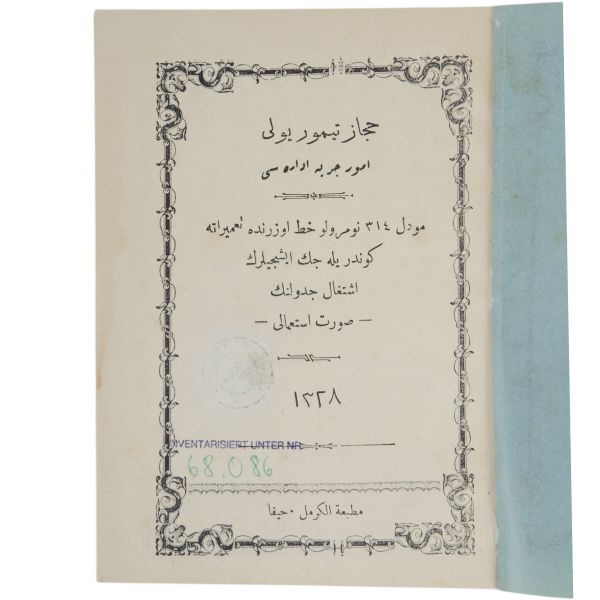 حجاز تیمور یولی
امور جریه اداره سی
مودل ٣١٤ نومرولو خط اوزرنده تعمیراته
کوندریله جك ایشجیلرك
اشتغال جدولنك
— صورت استعمالی —
١٣٢٨
INVENTARISIERT UNTER NR.
68.086
مطبعة الکرمل ٠ حیفا